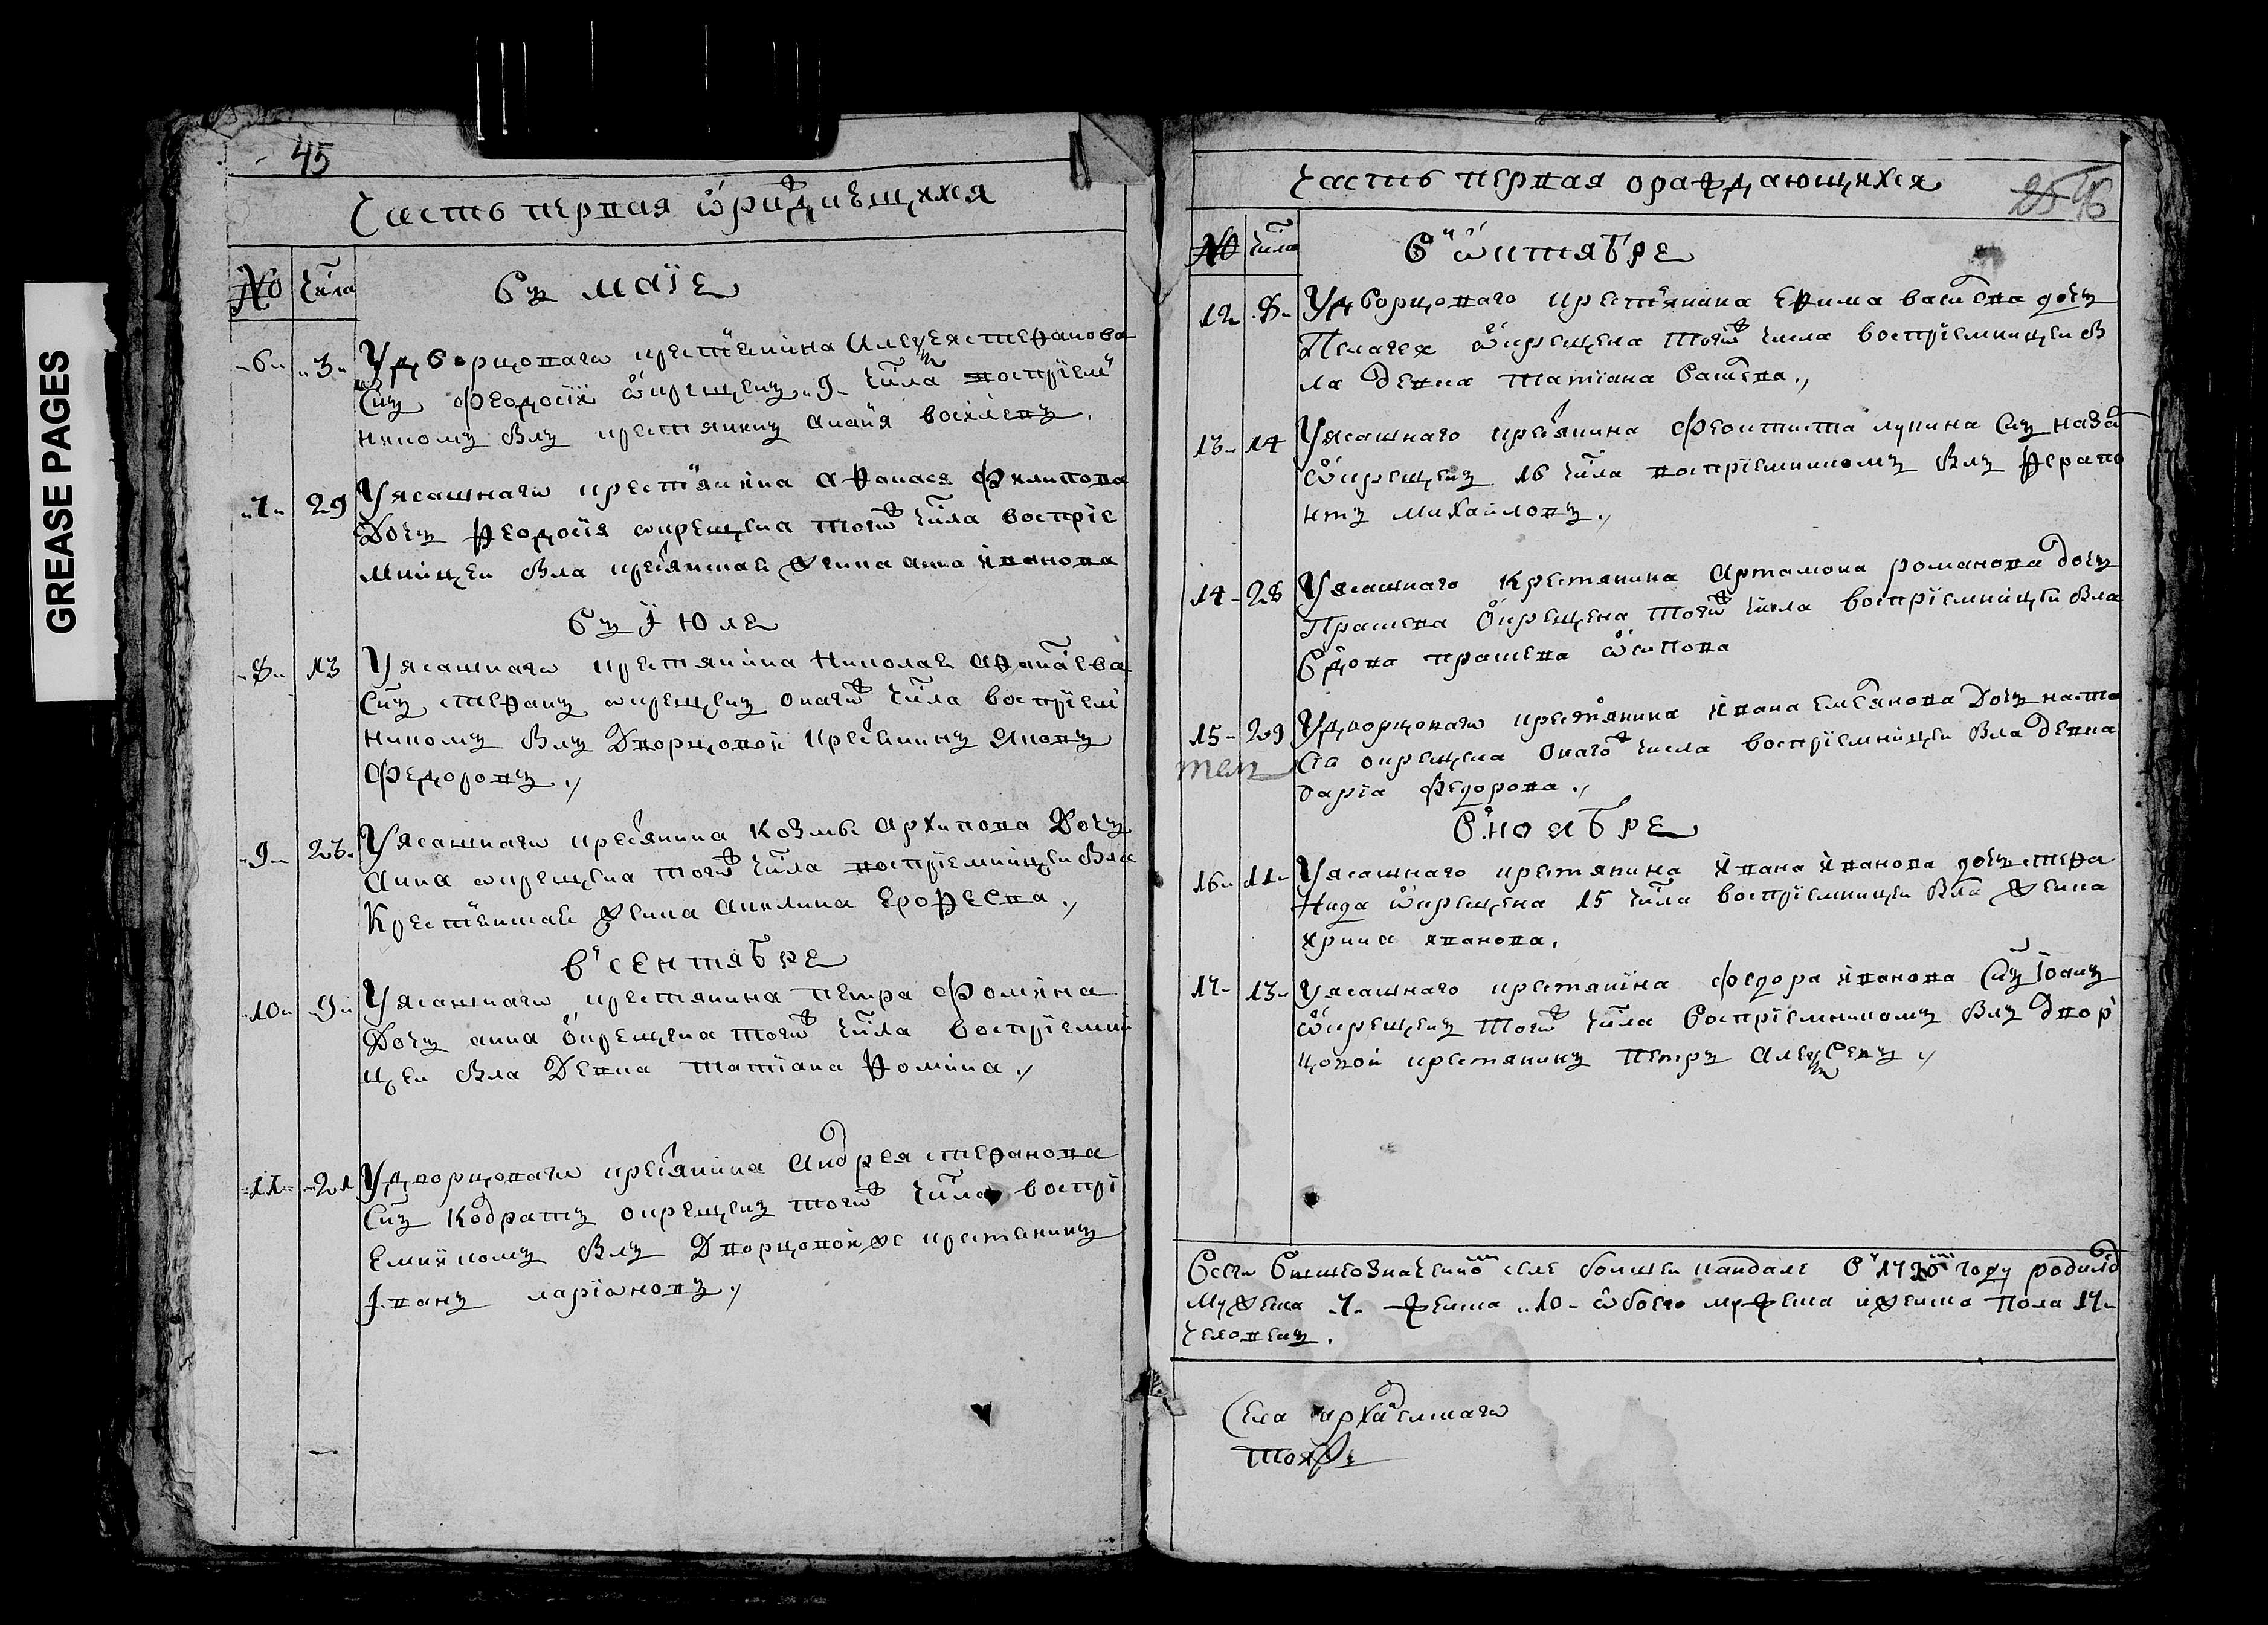 GREASE PAGES
45
Часть первая ѿродившихся
№ числа
Въ маїе
6 3 У дворцоваго крестьянина Алеѯея степанова
Сынъ Феодосїй ѿкрещенъ 9 числа воспрїем
никомъ былъ крестянинъ Анания
7 29 У ясашнаго крестьянина Афанася Филипова
Дочь Феодосїя ѡкрещена того числа воспрїе
мницеи была крестянская жена анна иванова
Въ Іюле
8 13 У ясашнаго крестянина Николая
Сынъ стефанъ ѡкрещенъ онаго числа воспрїем
никомъ былъ Дворцовой крестьянинъ Яковъ
Федоровъ
9 23 У ясашнаго крестянина Козмы Архипова Дочь
Анна ѡкрещена того числа воспрїемницеи была
Крестьянская жена Акилина Ерофеева
в сентябре
10 9 У ясашнаго крестянина петра Фомина
Дочь анна ѡкрещена того числа воспрїемни
цеи была Девка татїана Фомина
11 21 У дворцоваго крестянина Андрея стефанова
Сынъ Кодратъ окрещенъ того числа воспрї
емникомъ былъ Дворцовой же крестянинъ
Іванъ ларїѡновъ
Часть первая ораждающихся
46
№ числа
В ѡктябре
12 8 У дворцоваго крестьянина Ефима васильева дочь
Пелагея ѡкрещена того числа воспрїемницеи б
ла девка татїана Васильева
13 14 У ясашнаго крестянина Феоктиста лукина Сынъ
ѡкрещенъ 16 числа воспрїемникомъ былъ Ферапо
нтъ Михайловъ
14 28 У ясашнаго Крестянина Артамона романова дочь
Прасковя ѡкрещена того числа воспрїемницеи была
Вдова прасковя ѡсипова
15 29 У дворцоваго крестьянина ивана Емельянова Дочь наста
сїа окрещена онаго числа воспрїемницеи была девка
дарїа Федорова
В ноябре
16 11 У ясашнаго крестянина ивана иванова дочь стефа
нида ѡкрещена 15 числа воспрїемницеи была жена
ирина иванова
17 13 У ясашнаго крестянина федора иванова Сынъ Іоанъ
ѡкрещенъ того числа воспрїемникомъ былъ двор
цовой крестянинъ петръ Алеѯеевъ
Всего вышеозначенном селе болшеи кандале в году родилос
Мужеска 7 женска 10 ѡбоего мужеска и женска пола 17
человекъ
Села архангелскаго